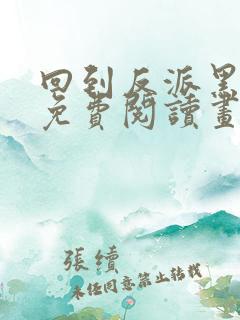 回到反派黑
免費閱讀畫
張續
未經同意禁止轉載